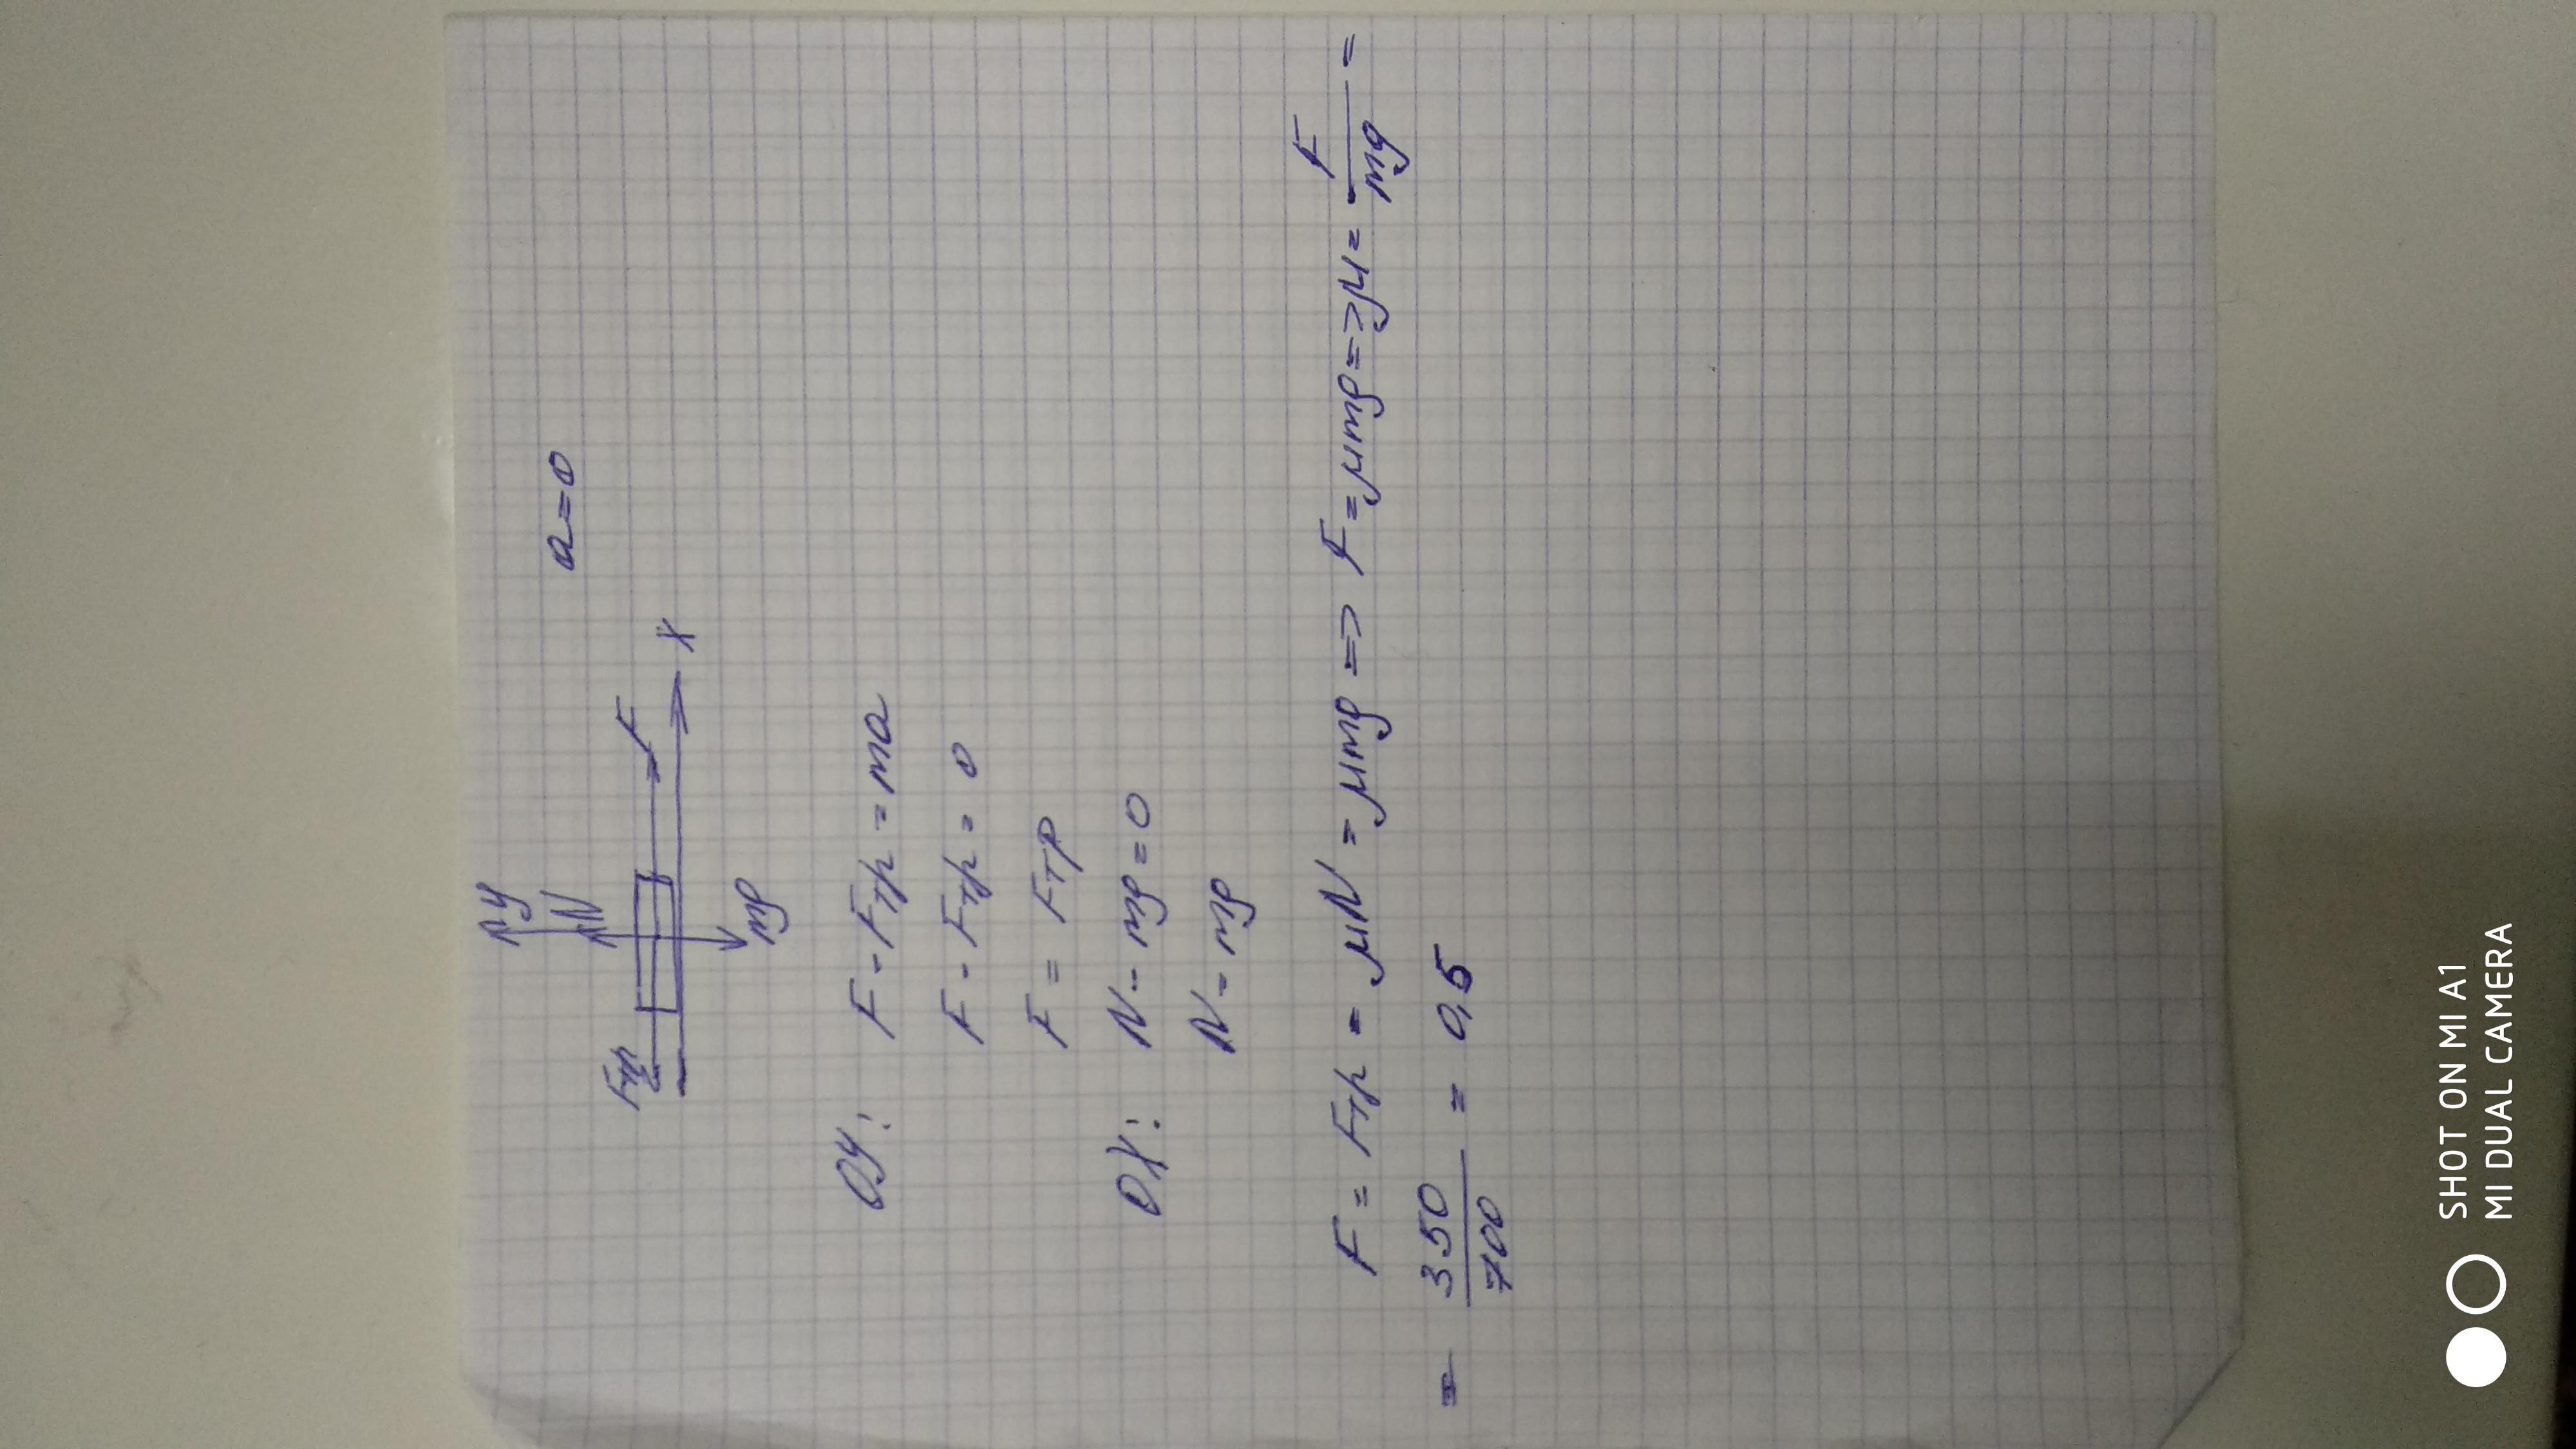 y
N
a=0
Fтр
F
x
mg
Oy: F - Fтр = ma
F - Fтр = 0
F = Fтр
Ox: N - mg = 0
N = mg
F = Fтр = μN = μmg => F = μmg => μ = F/mg =
= 350/700 = 0,5
SHOT ON MI A1
MI DUAL CAMERA